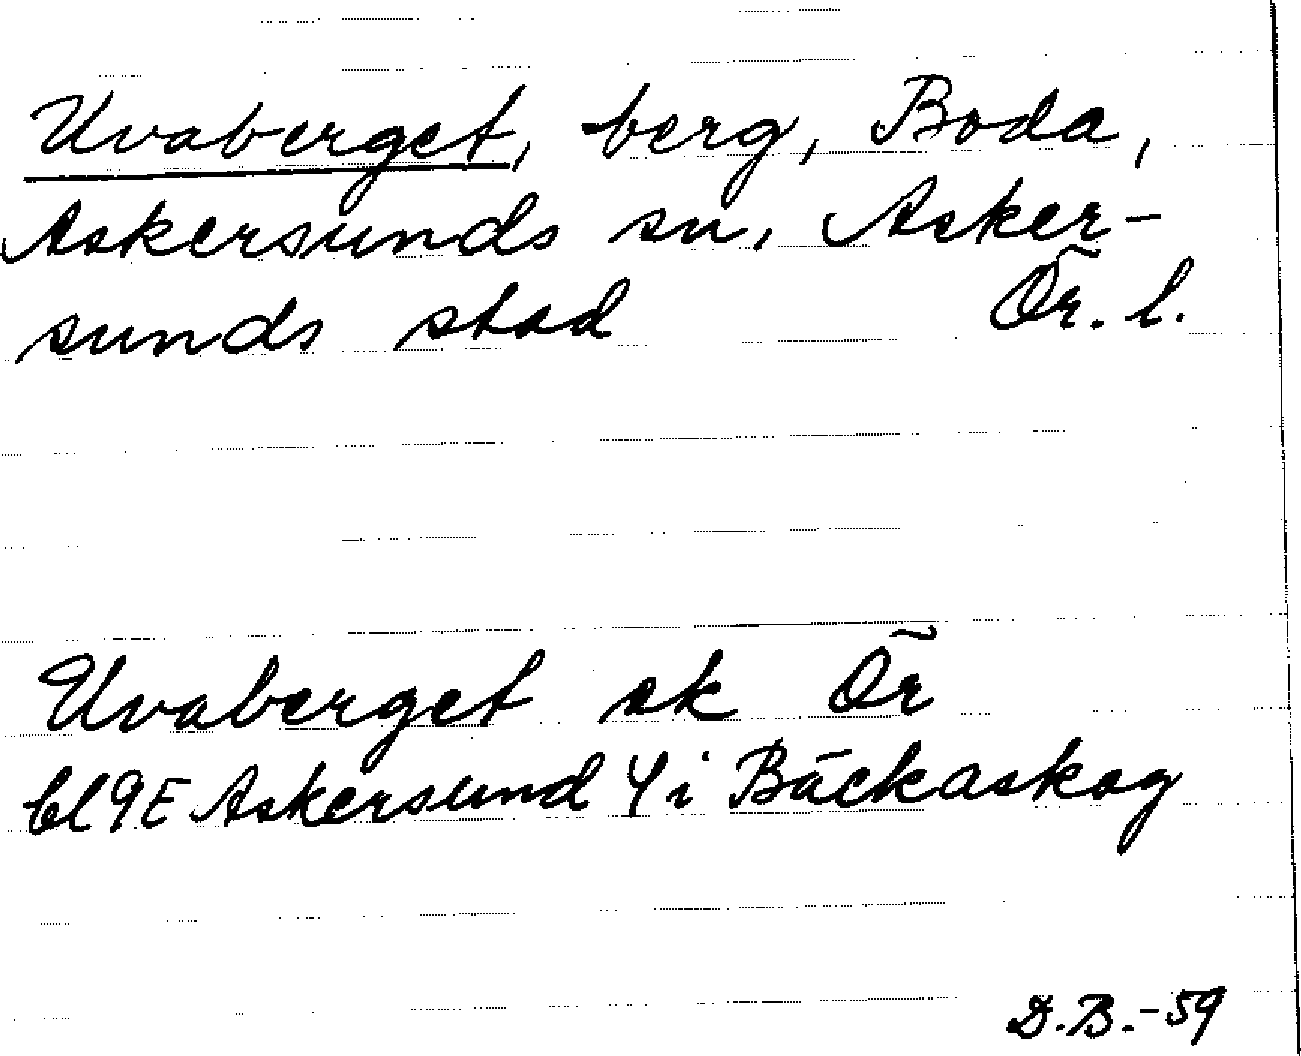 Uvaberget, berg, Boda,
Askersunds sn, Asker-
sunds stad Ör. l.
Uvaberget ek Ör
bl 9E Askersund 4 i Bäckaskog
D.B.-59